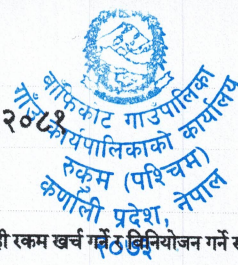 बाँफिकोट गाउँपालिका
गाउँ कार्यपालिकाको कार्यालय
२०८१
रुकुम (पश्चिम)
कर्णाली प्रदेश, नेपाल
२०७३
ही रकम खर्च गर्ने र विनियोजन गर्ने